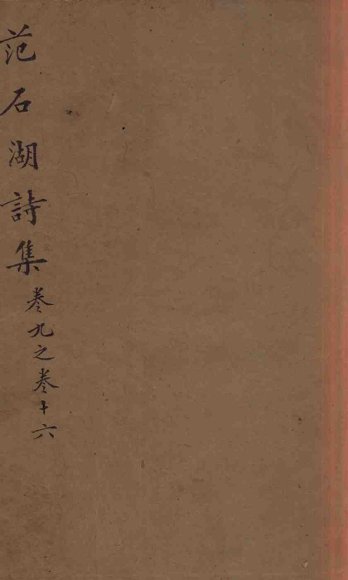 范石湖詩集
卷九之卷十六